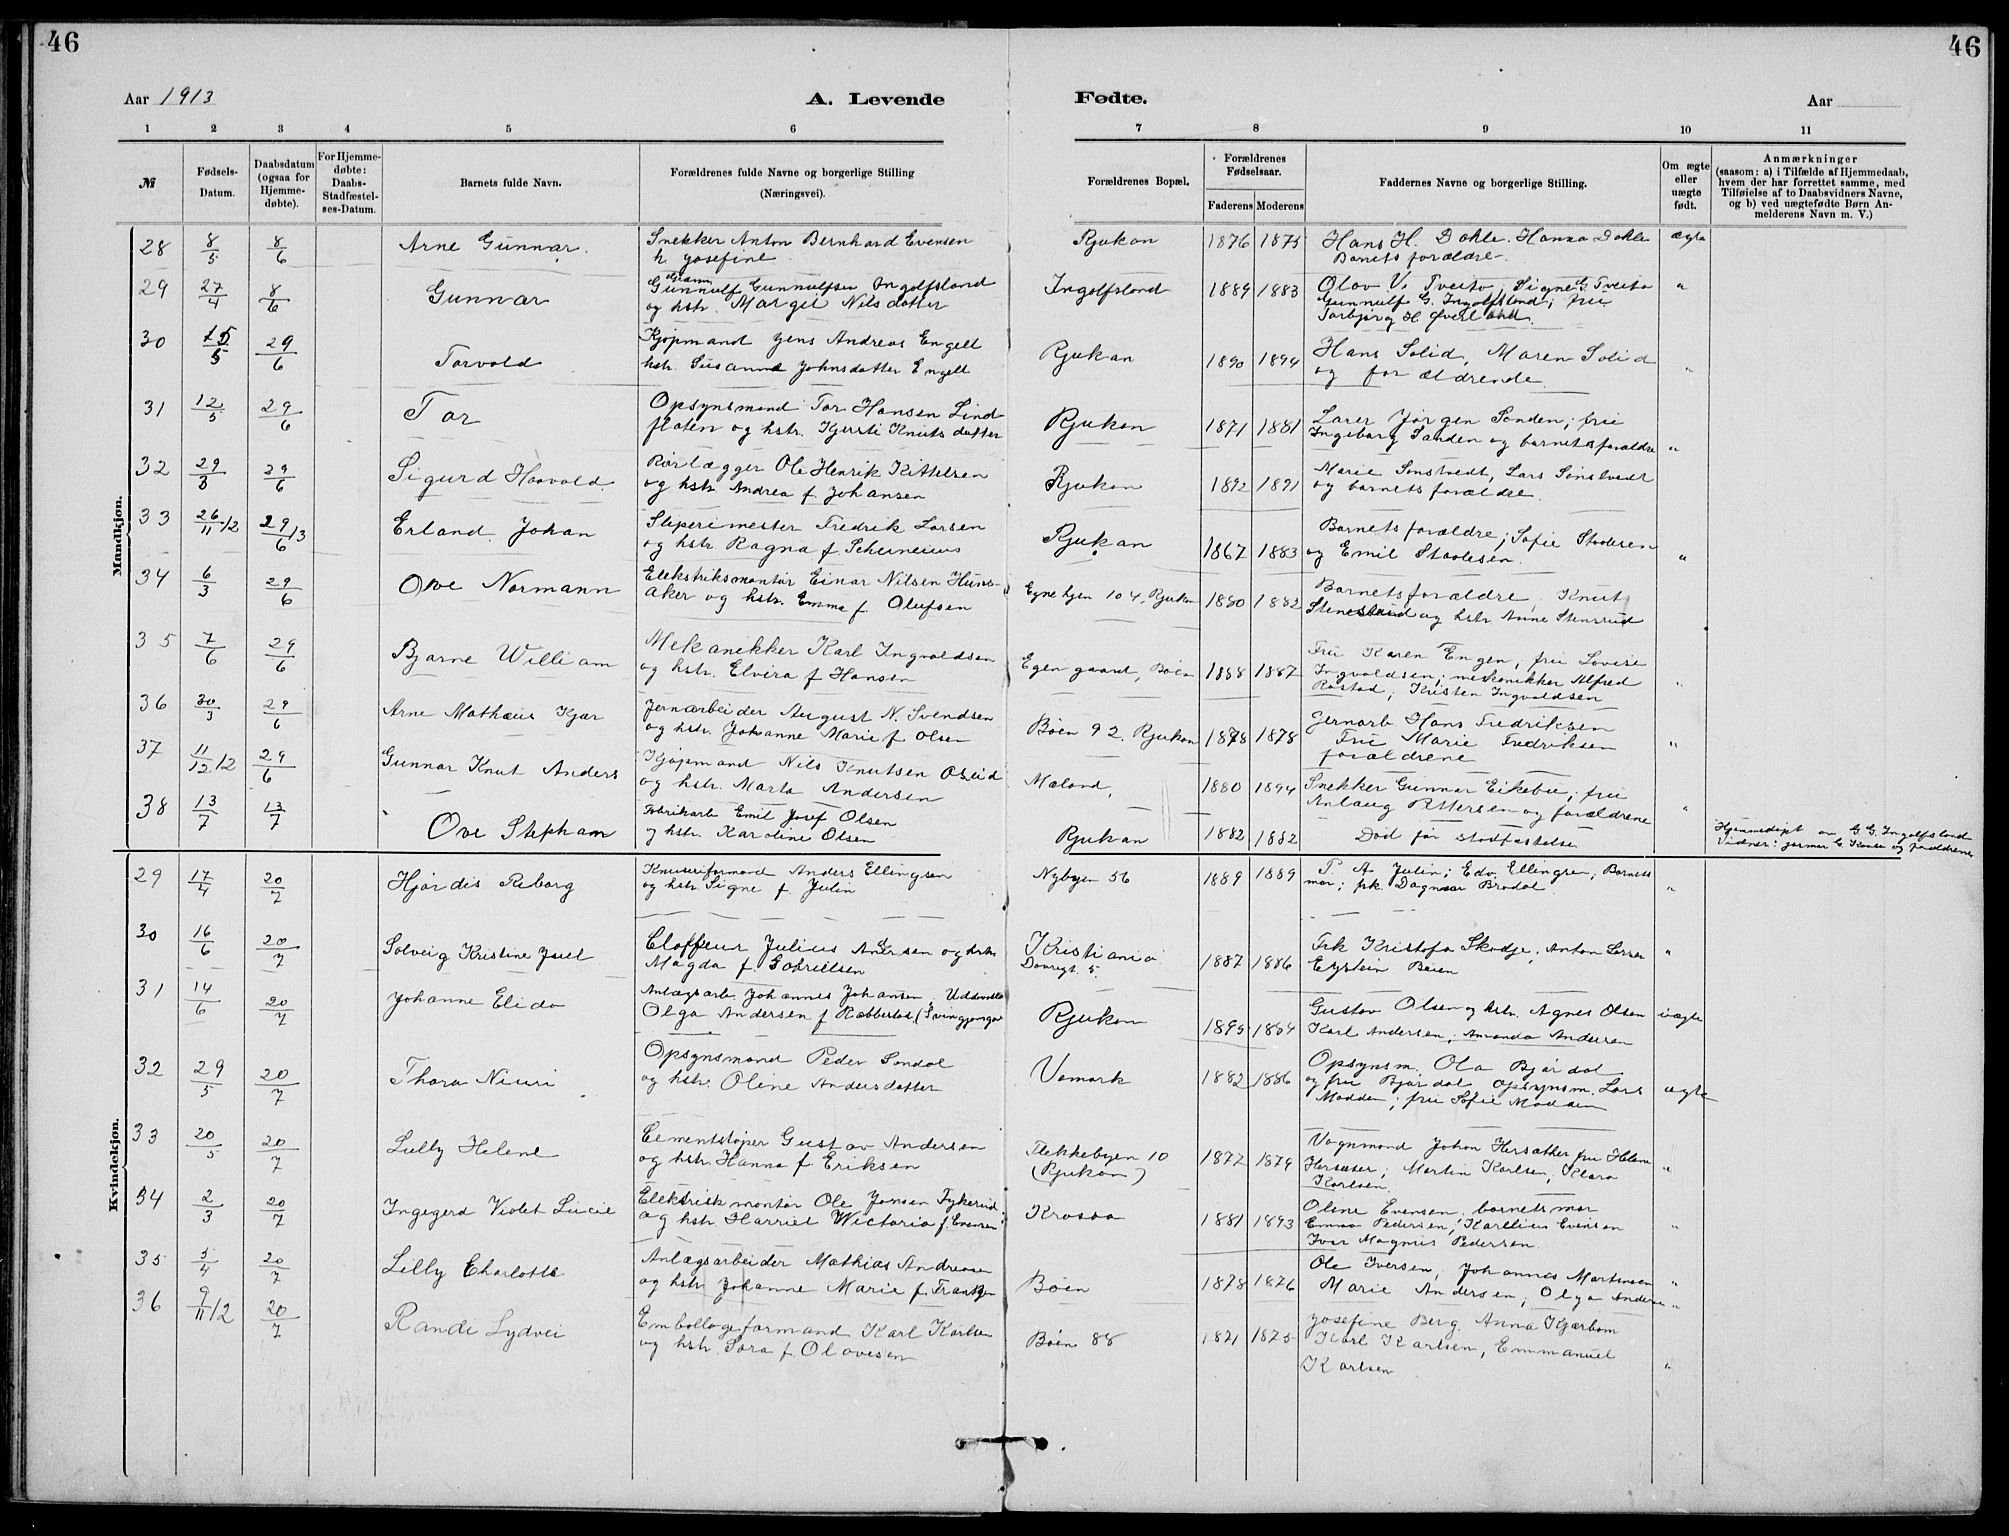 46
46
Aar 1913
A. Levende
Fødte.
Aar
1 2 3 4 5 6 7 8 9 10 11
№
Fødsels-
Datum.
Daabsdatum
(ogsaa for
Hjemme-
døbte).
For Hjemme-
døbte:
Daabs-
Stadfæstel-
ses-Datum.
Barnets fulde Navn.
Forældrenes fulde Navne og borgerlige Stilling
(Næringsvei).
Forældrenes Bopæl.
Forældrenes
Fødselsaar.
Faderens Moderens
Faddernes Navne og borgerlige Stilling.
Om ægte
eller
uægte
født.
Anmærkninger
(saasom: a) i Tilfælde af Hjemmedaab,
hvem der har forrettet samme, med
Tilføielse af to Daabsvidners Navne,
og b) ved uægtefødte Børn An-
melderens Navn m. V.)
Mandkjøn.
28 8/5 8/6 Arne Gunnar. Snekker Anton Bernhard Evensen Rjukan 1876 1875 Hans H. Dahle. Hanna Dahle ægte
h. Josefine Barnets forældre.
29 27/4 8/6 Gunnar Gunnulf Gunnulfsen Ingolfsland Ingolfsland 1889 1883 Olav V. Tveito; Signe G. Tveito "
og hstr. Margit Nilsdatter Gunnulf G. Ingolfsland; fru
Torbjørg H. Øverland.
30 15/5 29/6 Torvald Kjøpmand Jens Andreas Engell Rjukan 1890 1894 Hans Solid, Maren Solid "
hstr. Susanna Johnsdatter Engell og forældrende.
31 12/5 29/6 Tor Opsynsmand Tor Hansen Lind Rjukan 1871 1881 Lærer Jørgen Sanden; frue
flaten og hstr. Kjersti Knutsdatter Ingeborg Sanden og barnets forældre "
32 29/3 29/6 Sigurd Haavald Rørlægger Ole Henrik Kittelsen Rjukan 1892 1891 Marie Sønstvedt, Lars Sønstvedt
og hstr Andrea f. Johansen og barnets forældre.
33 26/11 12 29/6 13 Erland Johan Sliperimester Fredrik Larsen Rjukan 1867 1883 Barnets forældre; Sofie Staalesen
og hstr Ragna f. og Emil Staalesen. "
34 6/3 29/6 Ove Normann Elektriksmontør Einar Nilsen Huns- Egnehjem 104, Rjukan 1880 1882 Barnets forældre, Knut
aker og hstr. Emma f. Olufsen Stensrud og hstr Anne Stensrud
35 7/6 29/6 Bjarne William Mekanikker Karl Ingvaldsen Egen gaard, Bøen 1888 1887 Fru Karen Engen, frue Lovise
og hstr. Elvira f Hansen Ingvaldsen; mekanikker Alfred "
Røstad; Kristen Ingvaldsen
36 30/3 29/6 Arne Mathæus Kjær Jernarbeider August N. Svendsen Bøen 92. Rjukan 1878 1878 Jernarb Hans Fredriksen
og hstr. Johanne Marie f. Olsen Fru Marie Fredriksen "
forældrene
37 11/12 12 29/6 Gunnar Knut Anders Kjøpmand Nils Knutsen Mæland, 1880 1894 Snekker Gunnar Eikebu; frue
og hstr. Marta Andersen Anlaug Pettersen og forældrene "
38 13/7 13/7 Ove Stephan Fabrikarb Emil Josef Olsen Rjukan 1882 1882 Død før stadfæstelse Hjemmedøpt av G. G. Ingolfsland
og hstr. Karoline Olsen Vidner: og forældrene
Kvindekjøn.
29 17/4 20/7 Hjørdis Reborg Knuseriformand Anders Ellingsen Nybyen 56 1889 1889 P. A Julin; Edv. Ellingsen, Barnets
og hstr Signe f. Julin mor; frk. Dagmar Brodal "
30 16/6 20/7 Solveig Kristine Juel Julius Andersen og hstr Kristiania 1887 1886 Frk Kristofa Skodje; Anton Larsen "
Magda f. Gabrielsen 5. Eystein Beien
31 14/6 20/7 Johanne Elida Anlægsarb. Johannes Johansen, Uddevalla Rjukan 1895 1884 Gustav Olsen og hstr. Agnes Olsen uægte
Olga Andersen f Karl Andersen; Amanda Andersen
32 29/5 20/7 Thora Niuri Opsynsmand Peder Sondal Vemork 1882 1886 Opsynsm. Ola Bjørdal
og hstr. Oline Andersdatter og fru Bjørdal, opsynsm. Lars ægte
Madden; fru Sofie Madden
33 20/5 20/7 Lully Helene Cementstøper Gustav Andersen Flekkebyen 10 1872 1879 Vognmand Johan Hersæther fru Helene "
og hstr. Hanna f. Eriksen (Rjukan) Hersæter; Martin Karlsen, Klara
Karlsen.
34 2/3 20/7 Ingegerd Violet Lucie Elektrisk montør Ole Jonsen Tykerud Krosso 1881 1893 Oline Evensen. barnets mor
og hstr. Harriet Wictoria f. Evensen Emma Pedersen; Karelius Evensen "
Ivar Magnus Pedersen.
35 5/4 20/7 Lilly Charlotte Anlægsarbeider Mathias Andresen Bøen 1878 1876 Ole Iversen, Johannes Martinsen "
og hstr Johanne Marie f. Frantzen Marie Andersen, Olga Andersen "
36 9/11 12 20/7 Randi Lydvei Emballageformand Karl Karlsen Bøen 88 1871 1875 Josefine Berg. Anna Kjærbom
og hstr. Sara f. Olavesen Karl Karlsen, Emmanuel
Karlsen "